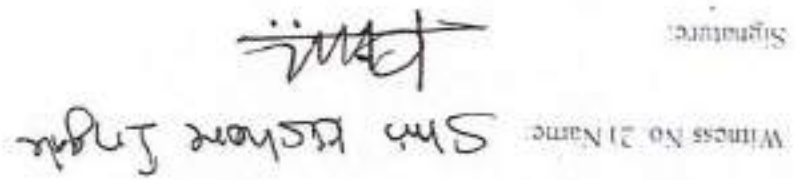 Witness No. 2) Name: Shri Kishor Ingole
Signature: